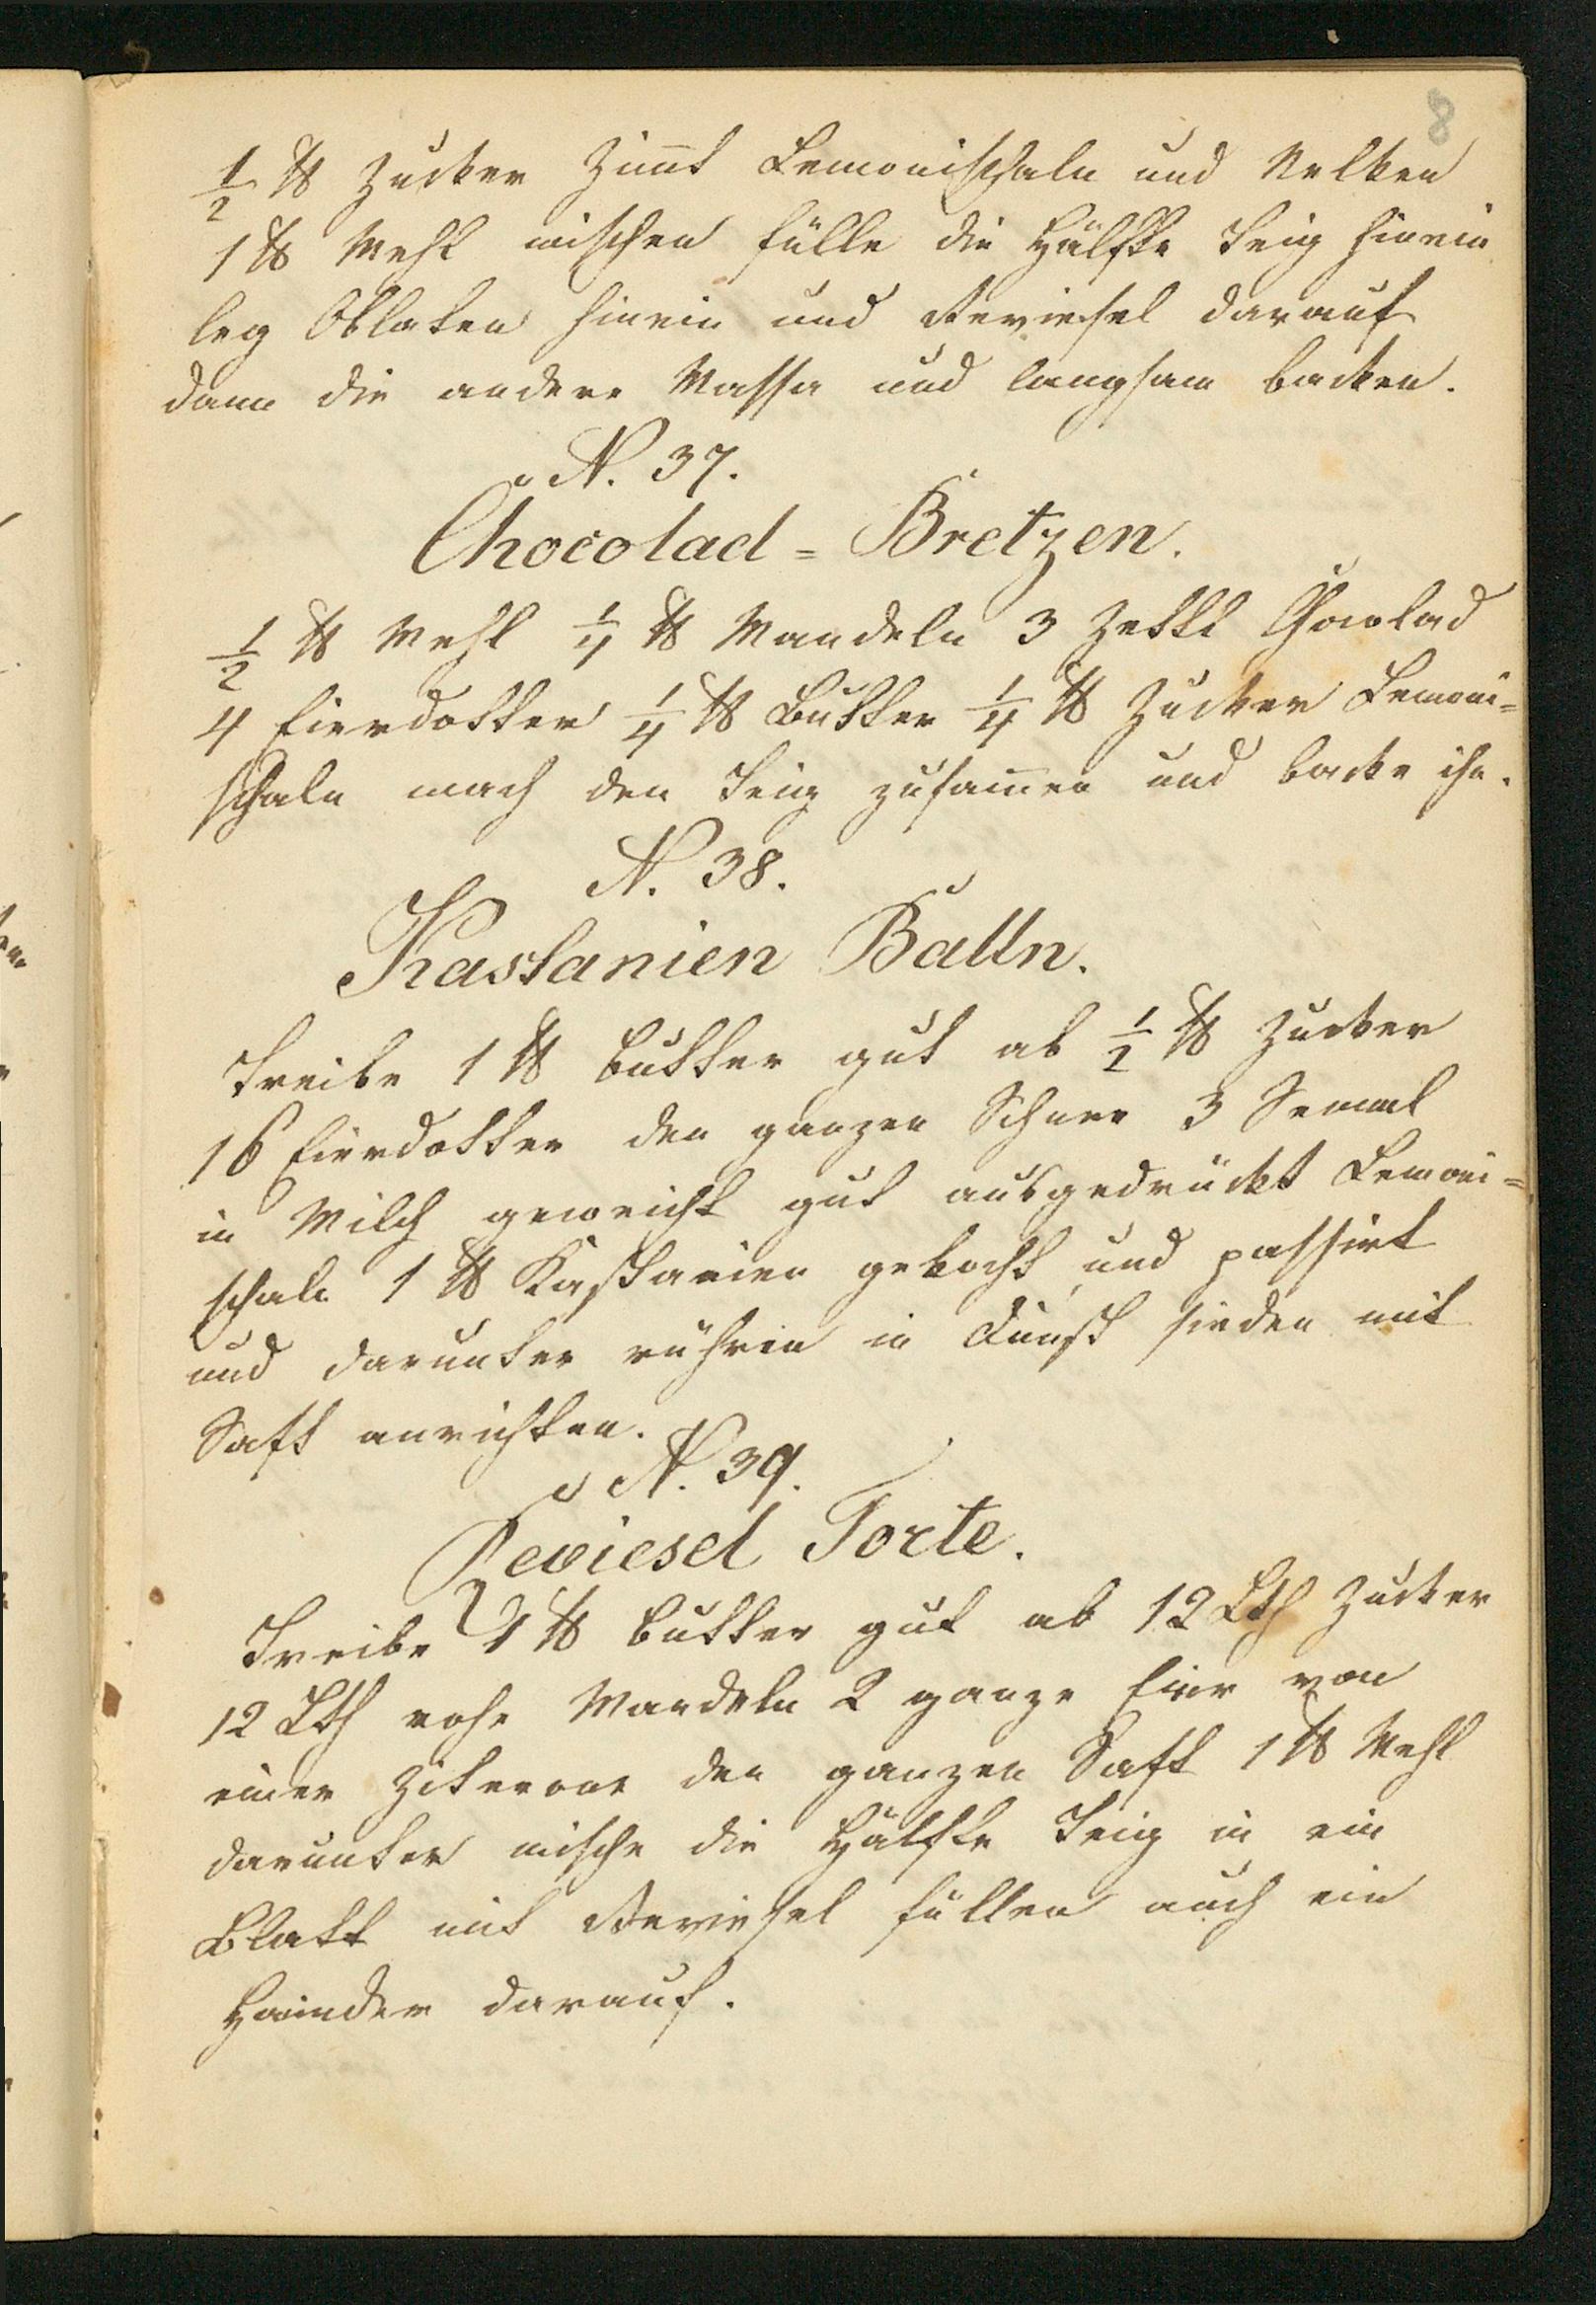 8
½ ℔ Zucker Zim̄t Lemonischaln und Nelken
1 ℔ Mehl mischen fülle die Hälfte Teig hinein
leg Oblaten hinein und Reviesel darauf
dann die andere Massa und langsam backen.
N. 37.
Chocolad = Bretzen.
½ ℔ Mehl ¼ ℔ Mandeln 3 Zeltl
4 Eierdotter ¼ ℔ Butter ¼ ℔ Zucker Lemoni=
schaln mach den Teig zusam̄en und backe ihn.
N. 38.
Kastanien Balln.
Treibe 1 ℔ Butter gut ab ½ ℔ Zucker
16 Eierdotter den ganzen Schnee 3 Semml
in Milch geweicht gut ausgedrückt Lemoni=
schale 1 ℔ Kastanien gekocht und passirt
und darunter rühren in Dunst sieden mit
Saft anrichten.
N. 39.
Reviesel Torte.
Treibe 1 ℔ Butter gut ab 12 Lth Zucker
12 Lth rohe Mandeln 2 ganze Eier von
einer den ganzen Saft 1 ℔ Mehl
darunter mische die Hälfte Teig in ein
Blatt mit Reviesel füllen auch ein
darauf.